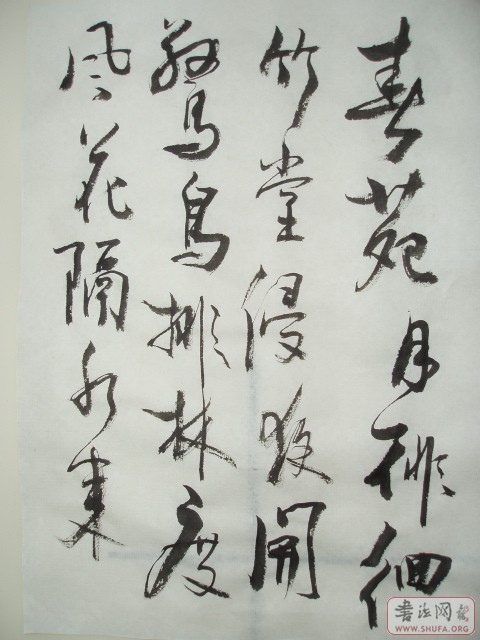 春苑月徘徊
竹堂侵夜開
驚鳥排林度
风花隔水来
書法网
WWW.SHUFA.ORG